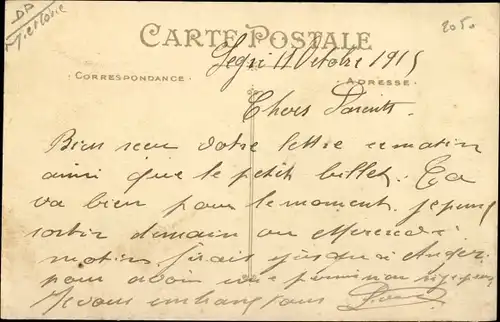 DP
205
CARTE POSTALE
Segré 11 Octobre 1915
CORRESPONDANCE
ADRESSE
Chers Parents.
Bien reçu votre lettre ce matin
ainsi que le petit billet. Ça
va bien pour le moment. je pense
sortir demain ou Mercredi
matin j'irais jusqu'à Angers
pour avoir une permission si je peux
Je vous embrasse tous